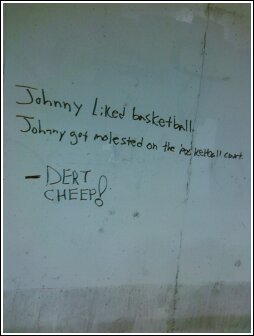 Johnny Liked basketball.
Johnny got molested on the basketball court.
- DERT
CHEEP!